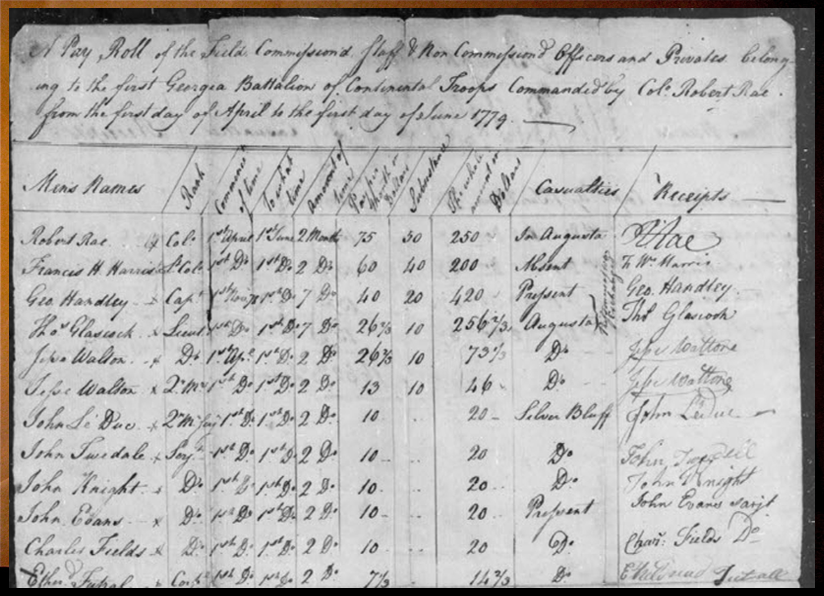 A Pay Roll of the Field Commission'd Staff & Non Commission'd Officers and Privates belong
ing to the first Georgia Battalion of Continental Troops Commanded by Colo. Robert Rae.
from the first day of April to the first day of June 1779.
Men's Names Rank Commence of time To what time Amount of time Pay per Month in Dollars Subsistence The whole amount in Dollars Casualties Receipts
Robert Rae Colo. 1st April 1st June 2 Month 75 50 250 In Augusta R Rae
Francis H Harris Lt Colo. 1st Do 1st Do 2 Do 60 40 200 Absent
Geo Handley Capt 1st 1st Do 7 Do 40 20 420 Present Geo. Handley
Thos Glascock Lieut 1st Do 1st Do 7 Do 26 2/3 10 256 2/3 Augusta Thos Glascock
Walton Do 1st Apl. 1st Do 2 Do 26 2/3 10 73 1/3 Do
Jesse Walton 1st Do 1st Do 2 Do 13 10 46 Do
John Le Duc 1st Do 1st Do 2 Do 10 20 Silver Bluff John LeDuc
John Tweedale Serjt 1st Do 1st Do 2 Do 10 20 Do John
John Knight Do 1st Do 1st Do 2 Do 10 20 Do John Knight
John Evans Do 1st Do 1st Do 2 Do 10 20 Present John Evans Sarjt
Charles Fields Do 1st Do 1st Do 2 Do 10 20 Do Chars. Fields Do
Futral Corpl 1st Do 1st Do 2 Do 7 1/3 14 2/3 Do